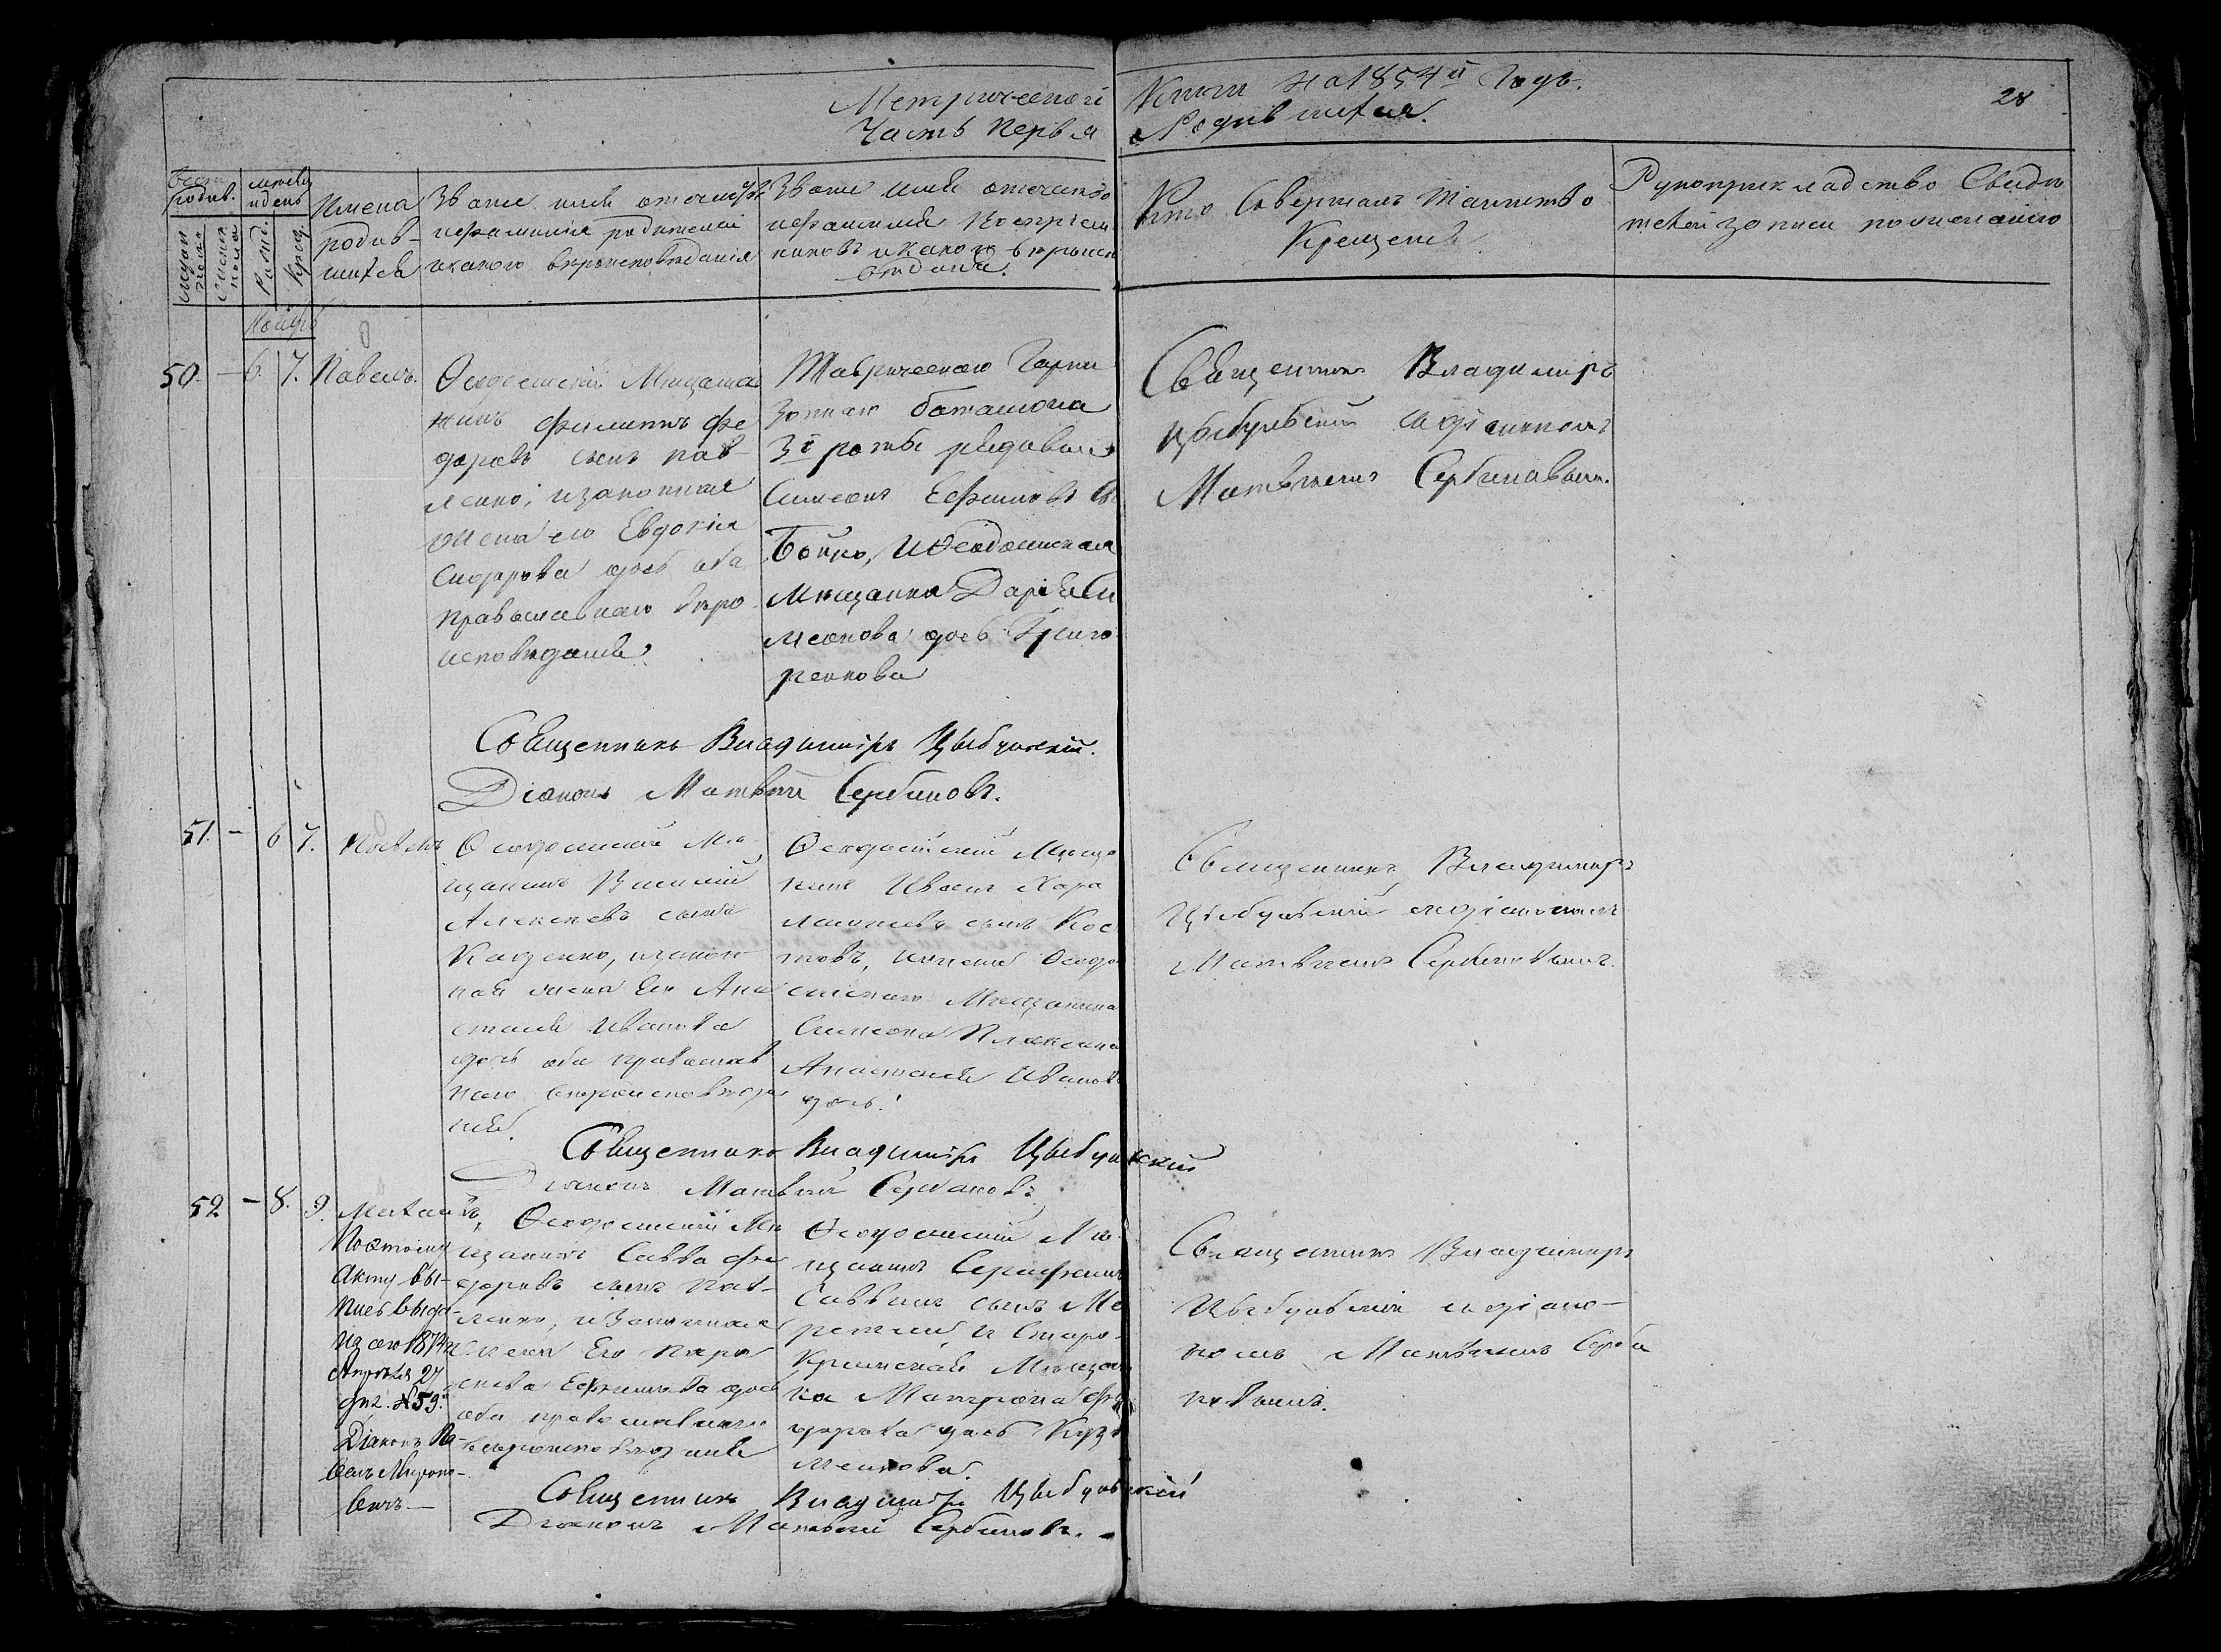 Метрической Книги на 1854й Годъ.
28
Часть первая Родившихся.
Счетъ родив.
месяцъ и день
Имена родив-
шихся
Званіе имя отчество
и фамилія родителей
и какого вѣроисповѣданія
Званіе имя отчество
и фамилія воспріем-
никовъ и какого вѣроиспо
вѣданія.
Кто Совершалъ таинство
Крещенія
Рукоприкладство Свидѣ
телей записи по желанію
мужеска
пола
женска
пола
Рожд.
Крещ.
Ноябрь
50. — 6. 7. Павелъ.
Ѳеодосійскій Мѣщан
инъ Филиппъ Фе
доровъ сынъ Пав-
ленко, и законная
жена его Евдокія
Сидорова дочь оба
православнаго вѣро
исповѣданія
Таврическаго Гарни
зоннаго баталіона
3й роты рядовый
Симеонъ Ефимовъ с.
Бойко, и Ѳеодосійская
Мѣщанка Дарія Си
меонова дочь Григо
ренкова
Священникъ Владиміръ
Цыбульскій съ діакономъ
Матвѣемъ Сербиновымъ.
Священникъ Владиміръ Цыбульскій.
Діаконъ Матвѣй Сербиновъ.
51. — 6 7. Павелъ
Ѳеодосійскій Мѣ-
щанинъ Василій
Алексѣевъ сынъ
законн-
ная жена Его Ана
стасія Иванова
дочь оба православ
наго вѣроисповѣда
нія.
Ѳеодосійскій Мѣща
нинъ Иванъ Хара
лампіевъ сынъ Кос
товъ, и жена Ѳеодо
сійскаго Мѣщанина
Симеона
Анастасія Иванова
дочь.
Священникъ Владиміръ
Цыбульскій съ діакономъ
Матвѣемъ Сербиновымъ.
Священникъ Владиміръ Цыбульскій
Діаконъ Матвѣй Сербиновъ.
52 — 8. 9. Михаилъ,
По этому
акту вы-
пись выда-
на 1874
Апрѣля 27
дня. №59.
Діаконъ Па-
велъ Мироно-
вичъ.—
Ѳеодосійскій Мѣ
щанинъ Савва Фе
доровъ сынъ Пав-
ленко, и Законная
жена Его Пара
скева Ефимова дочь
оба православнаго
вѣроисповѣданія
Ѳеодосійскій Мѣ-
щанинъ Серафимъ
Саввинъ сынъ
и Старо-
Крымская Мѣщан
ка Матрона Фе
дорова дочь Кузь
менкова.
Священникъ Владиміръ
Цыбульскій съ діако-
номъ Матвѣемъ Серби
новымъ.
Священникъ Владиміръ Цыбульскій
Діаконъ Матвѣй Сербиновъ.